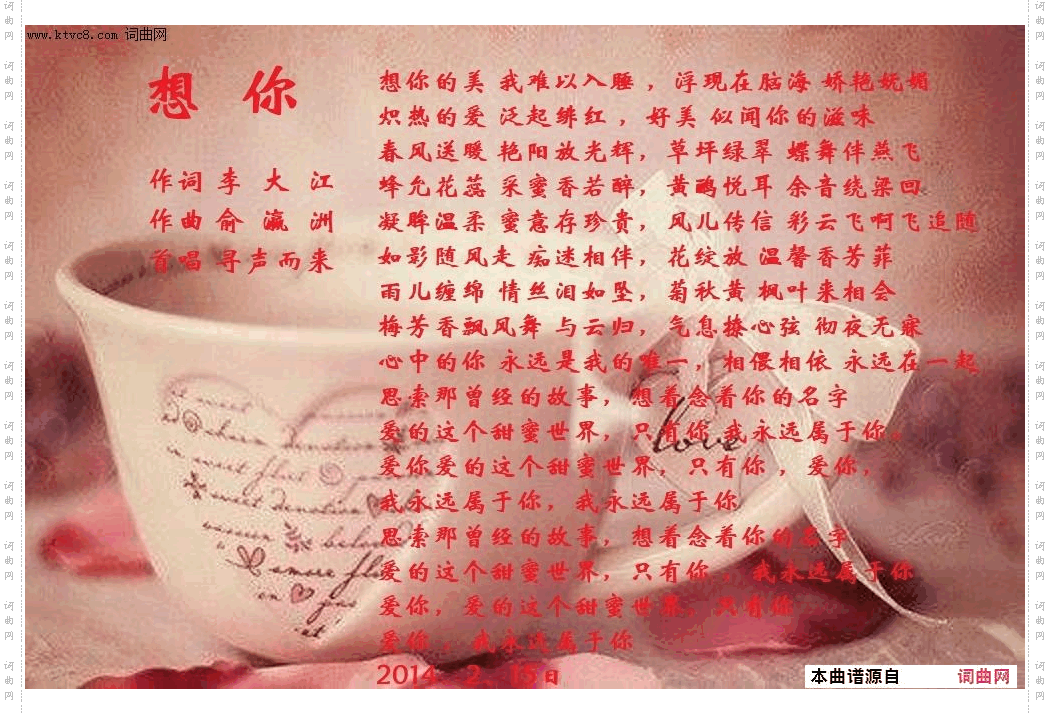 www.ktvc8.com 词曲网
想 你
作词 李 大 江
作曲 俞 瀛 洲
首唱 寻声而来
想你的美 我难以入睡 ，浮现在脑海 娇艳妩媚
炽热的爱 泛起绯红 ，好美 似闻你的滋味
春风送暖 艳阳放光辉，草坪绿翠 蝶舞伴燕飞
蜂允花蕊 采蜜香若醉，黄鹂悦耳 余音绕梁回
凝眸温柔 蜜意存珍贵，风儿传信 彩云飞啊飞追随
如影随风走 痴迷相伴，花绽放 温馨香芳菲
雨儿缠绵 情丝泪如坠，菊秋黄 枫叶来相会
梅芳香飘风舞 与云归，气息撩心弦 彻夜无寐
心中的你 永远是我的唯一 ，相偎相依 永远在一起
思索那曾经的故事，想着念着你的名字
爱的这个甜蜜世界，只有你 我永远属于你。
爱你爱的这个甜蜜世界，只有你 ，爱你，
我永远属于你，我永远属于你
思索那曾经的故事，想着念着你的名字
爱的这个甜蜜世界，只有你 ，我永远属于你
爱你，爱的这个甜蜜世界，只有你
爱你 ，我永远属于你
2014、2、15日
love
本曲谱源自 词曲网